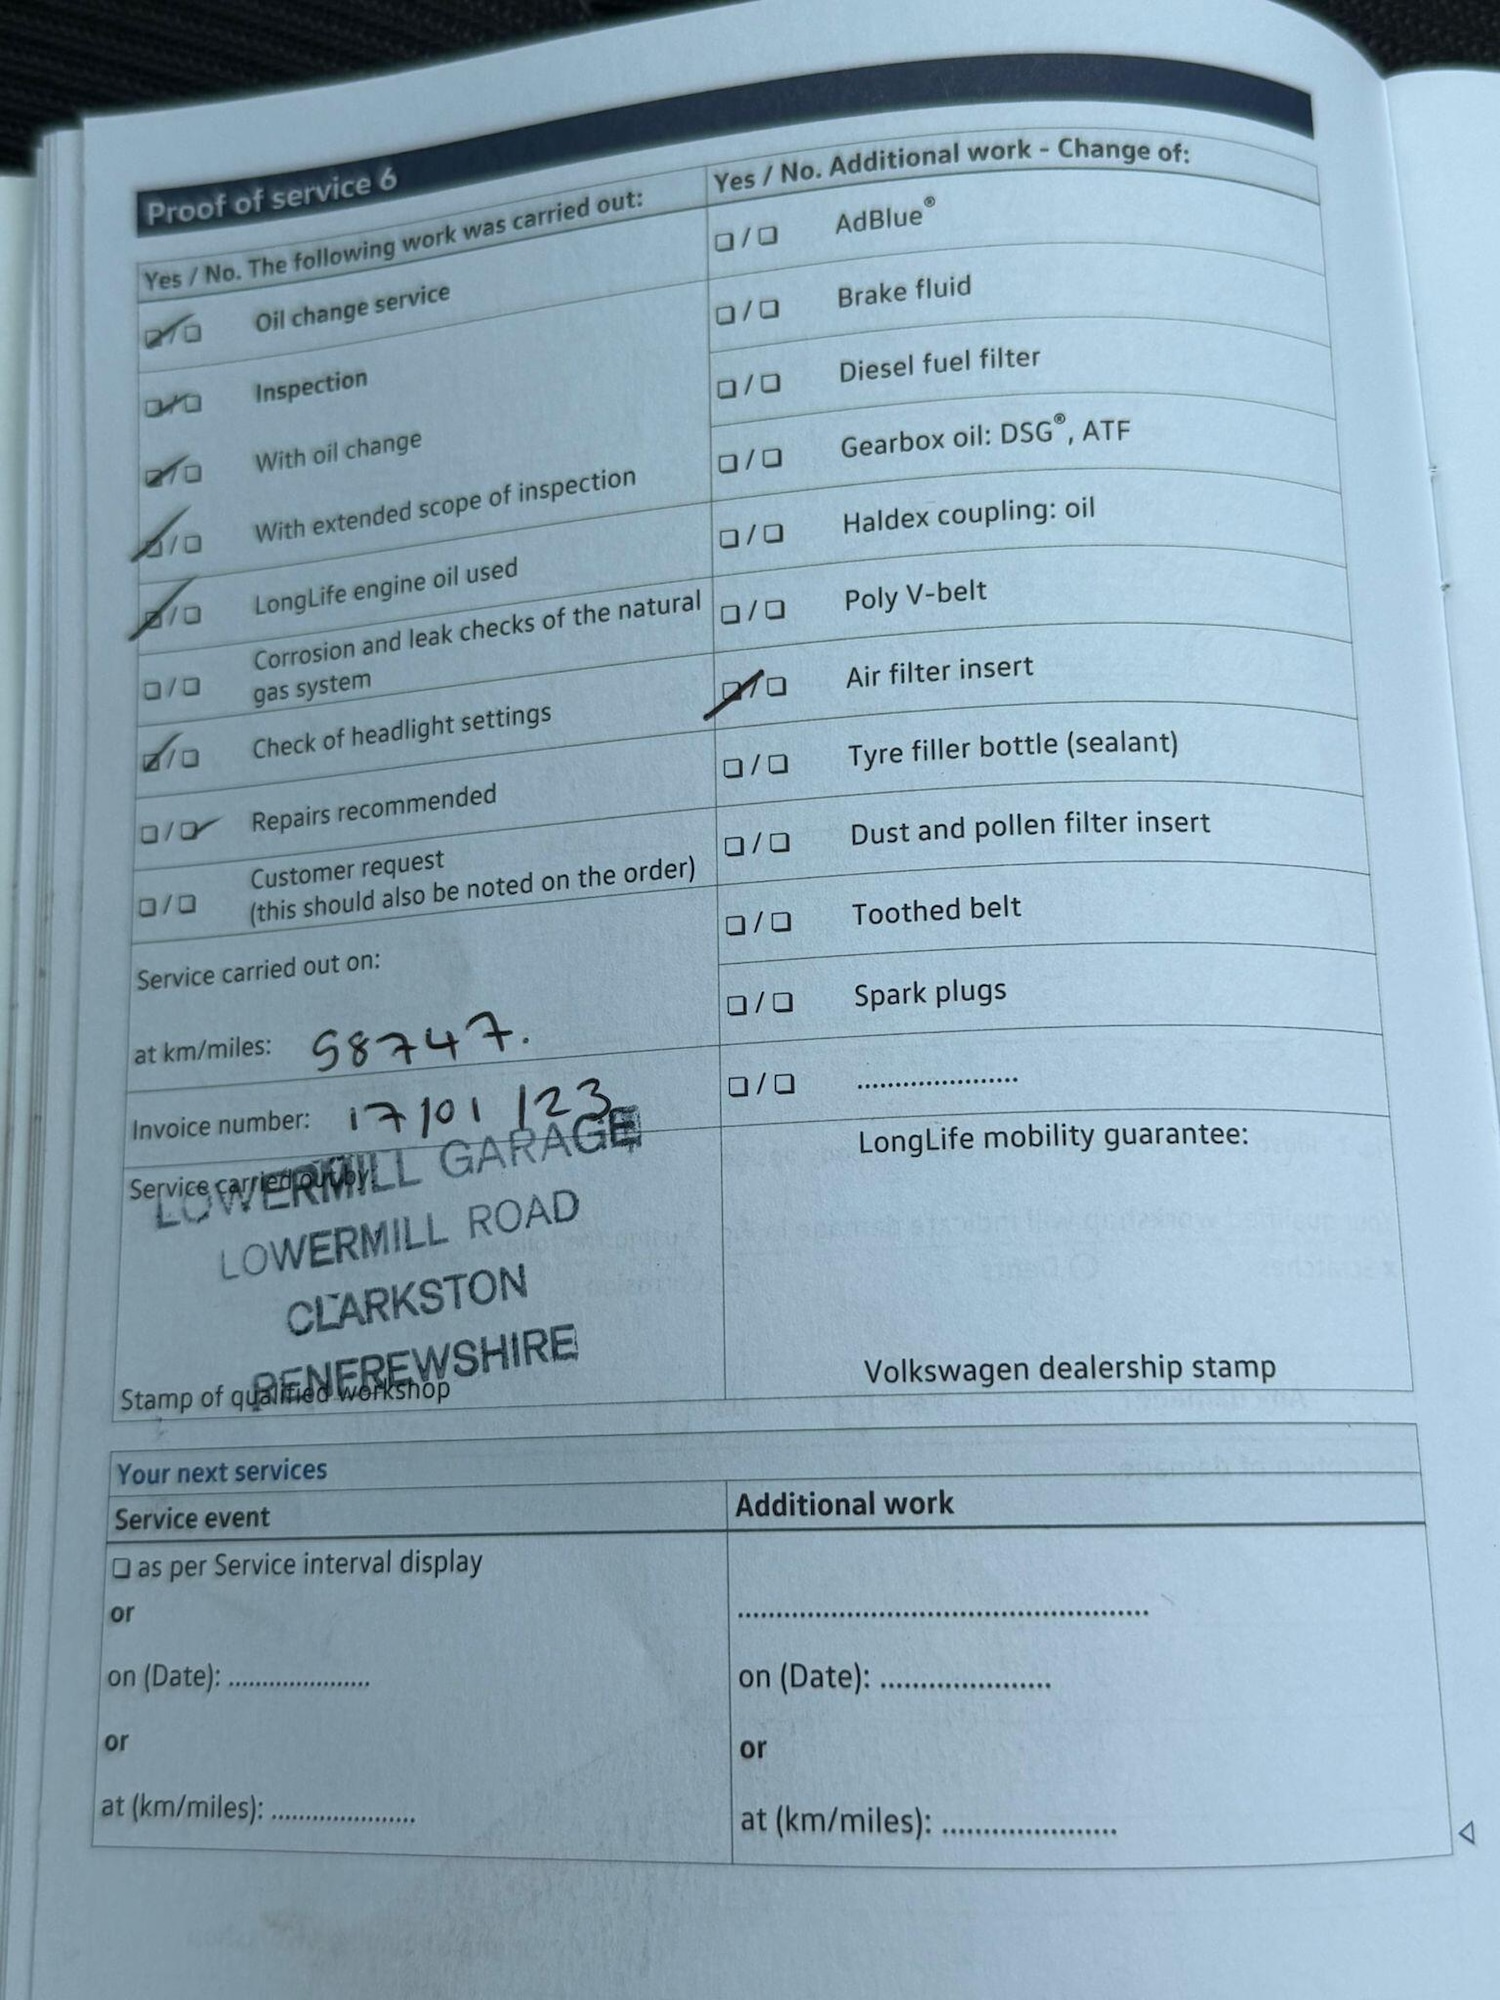 Proof of service 6
Yes / No. The following work was carried out:
Oil change service
Inspection
With oil change
With extended scope of inspection
LongLife engine oil used
Corrosion and leak checks of the natural
gas system
Check of headlight settings
Repairs recommended
Customer request
(this should also be noted on the order)
Service carried out on:
at km/miles: 58747.
Invoice number: 17/01/23
Service carried out by:
LOWERMILL GARAGE
LOWERMILL ROAD
CLARKSTON
RENFREWSHIRE
Stamp of qualified workshop
Yes / No. Additional work - Change of:
AdBlue®
Brake fluid
Diesel fuel filter
Gearbox oil: DSG®, ATF
Haldex coupling: oil
Poly V-belt
Air filter insert
Tyre filler bottle (sealant)
Dust and pollen filter insert
Toothed belt
Spark plugs
.....................
LongLife mobility guarantee:
Volkswagen dealership stamp
Your next services
Service event
as per Service interval display
or
on (Date): .....................
or
at (km/miles): .....................
Additional work
......................................................
on (Date): .....................
or
at (km/miles): .....................